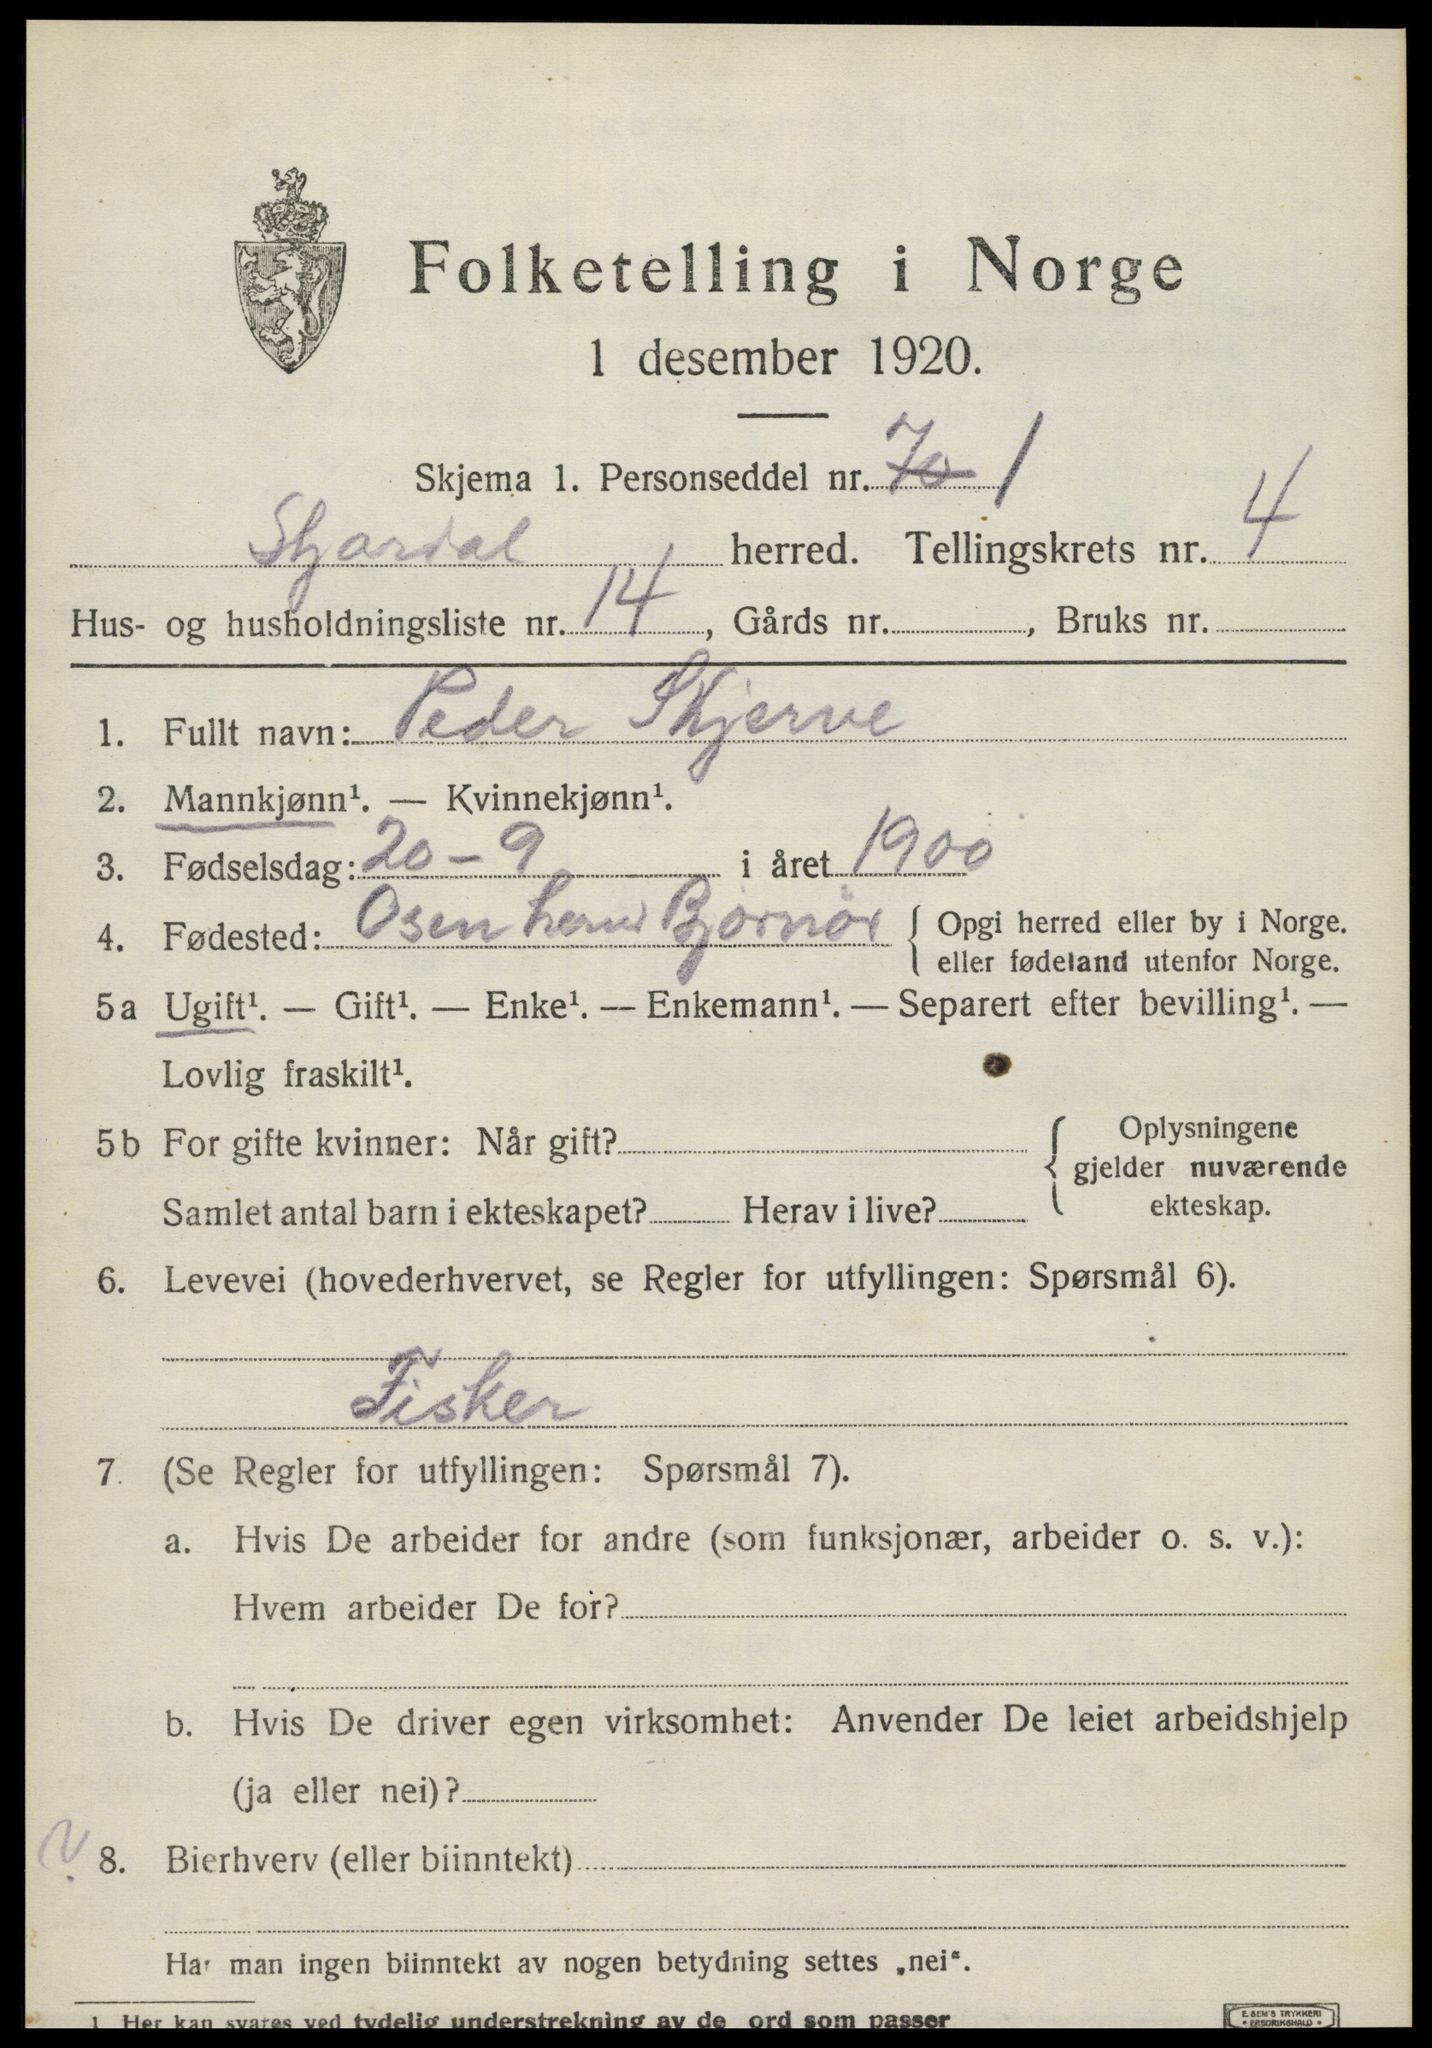 Folketelling i Norge
1 desember 1920.
Skjema 1. Personseddel nr. 70 1
Stjørdal herred. Tellingskrets nr. 4
Hus- og husholdningsliste nr. 14, Gårds nr. , Bruks nr.
1. Fullt navn: Peder Skjerve
2. Mannkjønn¹. — Kvinnekjønn¹.
3. Fødselsdag: 20 - 9 i året 1900
4. Fødested: Osen herred Bjørnør { Opgi herred eller by i Norge.
eller fødeland utenfor Norge.
5a Ugift¹. — Gift¹. — Enke¹. — Enkemann¹. — Separert efter bevilling¹. —
Lovlig fraskilt¹.
5b For gifte kvinner: Når gift? { Oplysningene
gjelder nuværende
ekteskap.
Samlet antal barn i ekteskapet? Herav i live?
6. Levevei (hovederhvervet, se Regler for utfyllingen: Spørsmål 6).
Fisker
7. (Se Regler for utfyllingen: Spørsmål 7).
a. Hvis De arbeider for andre (som funksjonær, arbeider o. s. v.):
Hvem arbeider De for?
b. Hvis De driver egen virksomhet: Anvender De leiet arbeidshjelp
(ja eller nei)?
8. Bierhverv (eller biinntekt)
Har man ingen biinntekt av nogen betydning settes „nei“.
1 Her kan svares ved tydelig understrekning av de ord som passer
E. SEM'S TRYKKERI
• FREDRIKSHALD •